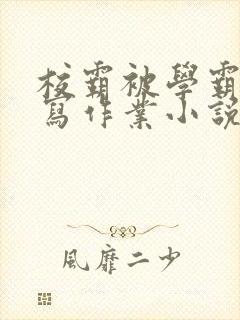 校霸被學霸
寫作業小說
風靡二少